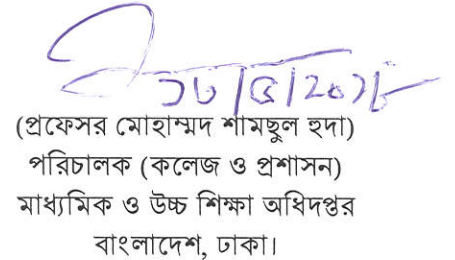 (প্রফেসর মোহাম্মদ শামছুল হুদা)
পরিচালক (কলেজ ও প্রশাসন)
মাধ্যমিক ও উচ্চ শিক্ষা অধিদপ্তর
বাংলাদেশ, ঢাকা।